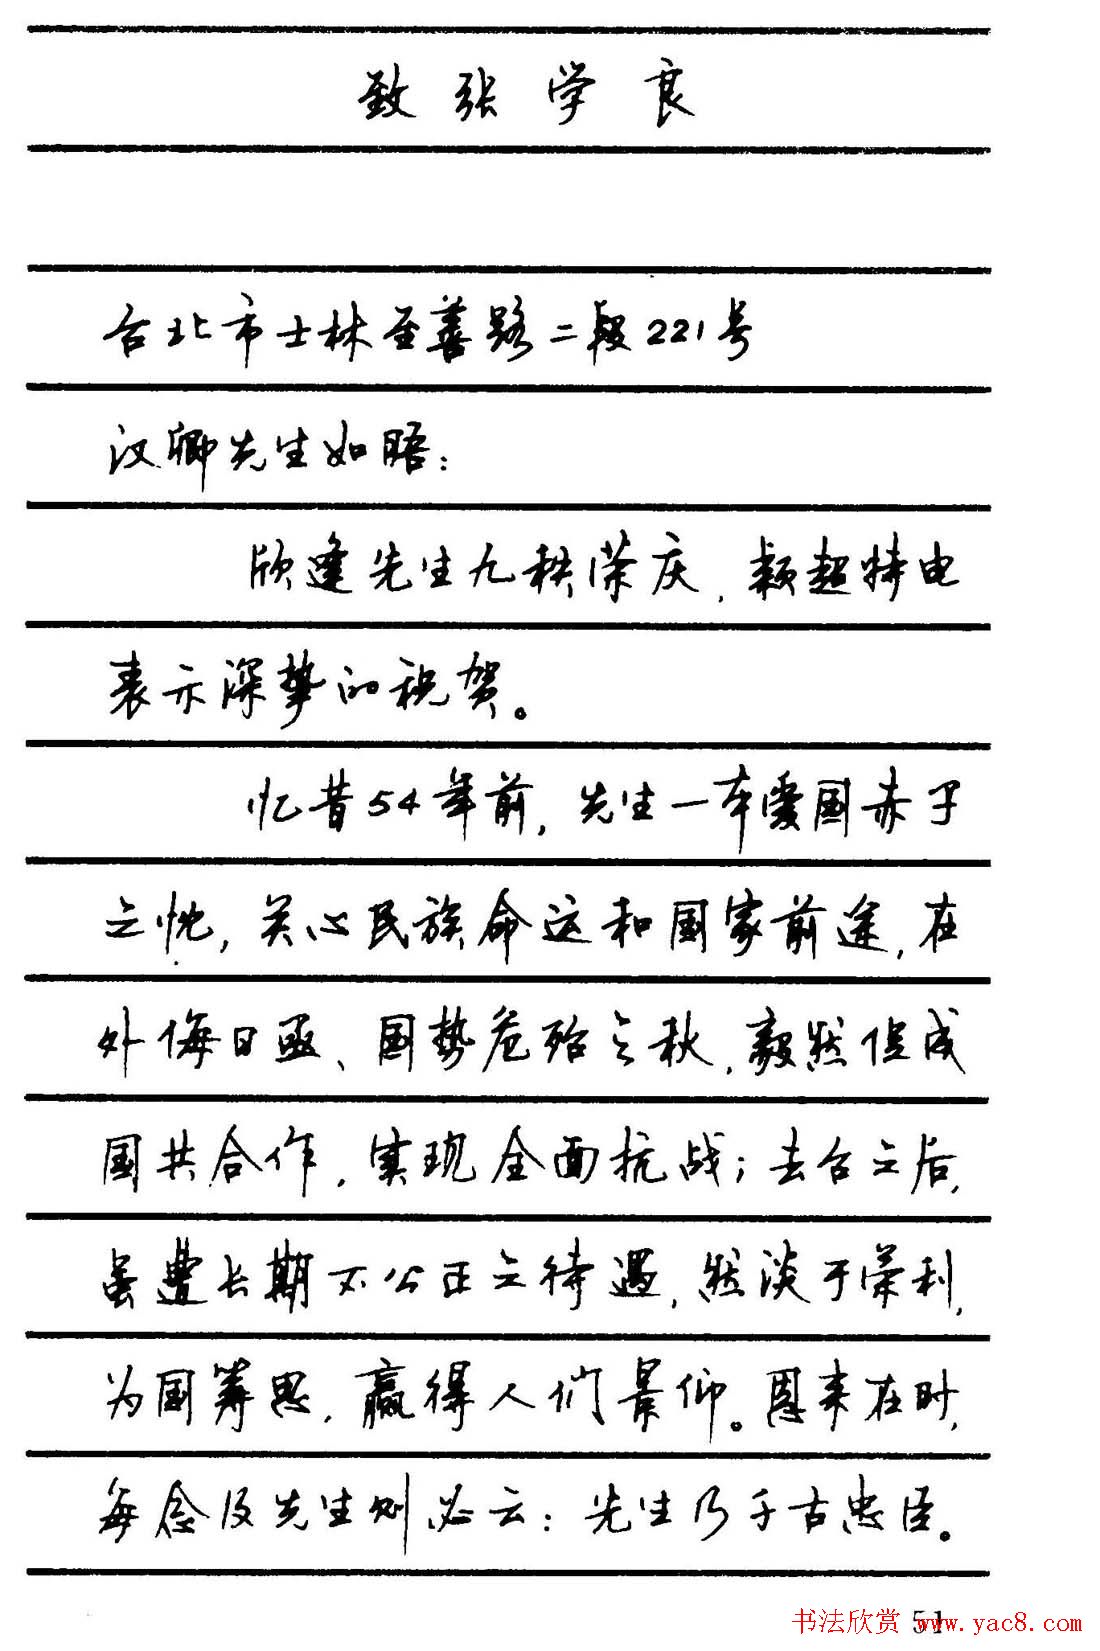 致张学良
台北市士林至善路二段221号
汉卿先生如晤：
欣逢先生九秩荣庆，颖超特电
表示深挚的祝贺。
忆昔54年前，先生一本爱国赤子
之忱，关心民族命运和国家前途，在
外侮日亟、国势危殆之秋，毅然促成
国共合作，实现全面抗战；去台之后，
虽遭长期不公正之待遇，然淡于荣利，
为国筹思，赢得人们景仰。恩来在时，
每念及先生则必云：先生乃千古忠臣。
51
书法欣赏 www.yac8.com